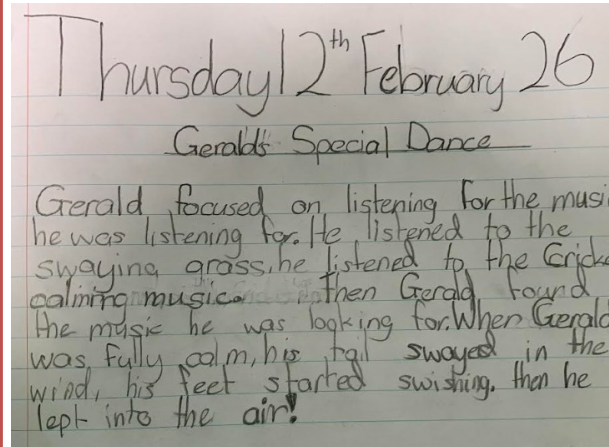 Thursday 12th February 26
Gerald's Special Dance
Gerald focused on listening for the musi
he was listening for. He listened to the
swaying grass, he listened to the Cricke
calming music. then Gerald found
the music he was looking for. When Gerald
was fully calm, his tail swayed in the
wind, his feet started swishing. then he
lept into the air!